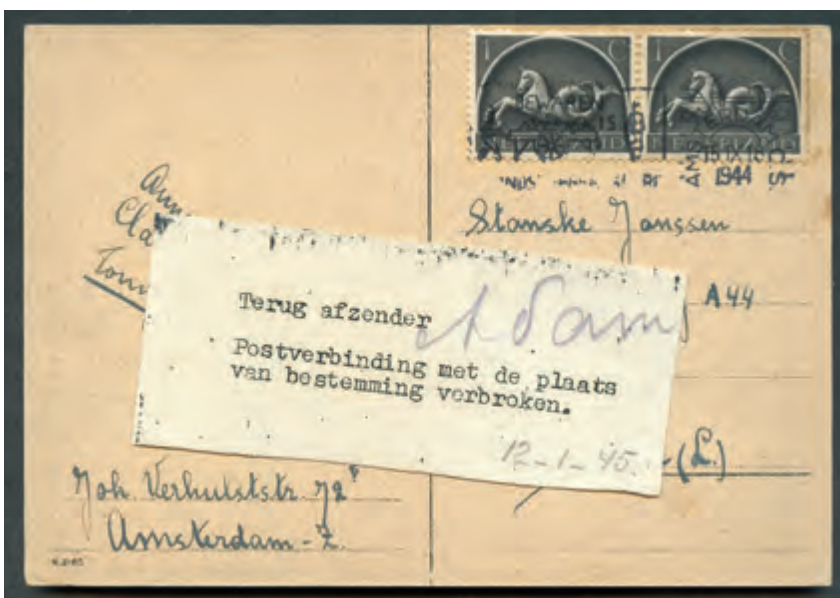 1 C
1 C
NEDERLAND
NEDERLAND
15 IX 18
1944
Stanske Janssen
A 44
Terug afzender
Adam
Postverbinding met de plaats
van bestemming verbroken.
12-1-45.
(L.)
Joh. Verhulststr. 72
Amsterdam-Z.